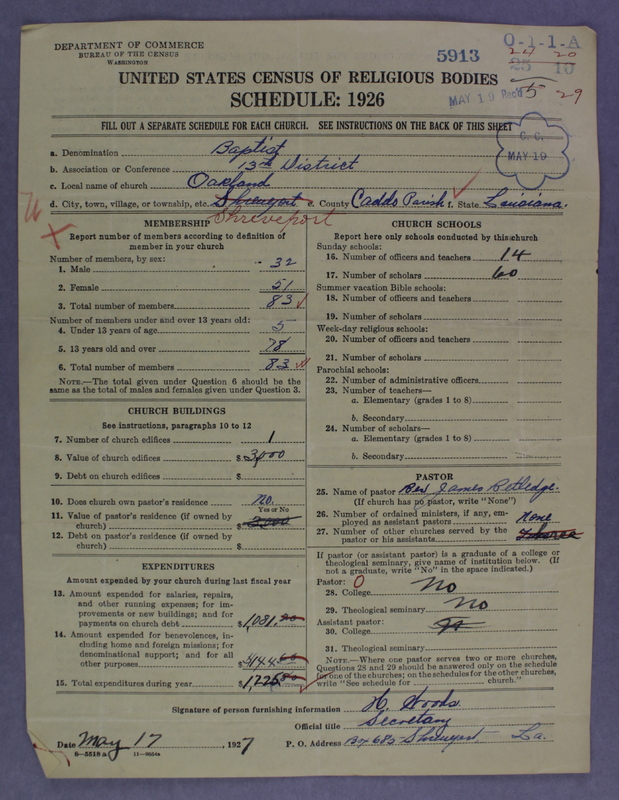 DEPARTMENT OF COMMERCE
BUREAU OF THE CENSUS
WASHINGTON
5913
O-1-1-A
24 20
25 10
UNITED STATES CENSUS OF RELIGIOUS BODIES
SCHEDULE: 1926
MAY 19 Rec'd
5 29
FILL OUT A SEPARATE SCHEDULE FOR EACH CHURCH. SEE INSTRUCTIONS ON THE BACK OF THIS SHEET
C. C.
MAY 19
a. Denomination Baptist
b. Association or Conference 13th District
c. Local name of church Oakland
d. City, town, village, or township, etc. Shreveport e. County Caddo Parish f. State Louisiana.
Shreveport
MEMBERSHIP
Report number of members according to definition of
member in your church
Number of members, by sex:
1. Male 32
2. Female 51
3. Total number of members 83
Number of members under and over 13 years old:
4. Under 13 years of age 5
5. 13 years old and over 78
6. Total number of members 83
NOTE.—The total given under Question 6 should be the
same as the total of males and females given under Question 3.
CHURCH BUILDINGS
See instructions, paragraphs 10 to 12
7. Number of church edifices 1
8. Value of church edifices $ 3000
9. Debt on church edifices $
10. Does church own pastor's residence no.
Yes or No
11. Value of pastor's residence (if owned by
church) $
12. Debt on pastor's residence (if owned by
church) $
EXPENDITURES
Amount expended by your church during last fiscal year
13. Amount expended for salaries, repairs,
and other running expenses; for im-
provements or new buildings; and for
payments on church debt $1,081.
14. Amount expended for benevolences, in-
cluding home and foreign missions; for
denominational support; and for all
other purposes $
15. Total expenditures during year $1,225
CHURCH SCHOOLS
Report here only schools conducted by this church
Sunday schools:
16. Number of officers and teachers 14
17. Number of scholars 60
Summer vacation Bible schools:
18. Number of officers and teachers
19. Number of scholars
Week-day religious schools:
20. Number of officers and teachers
21. Number of scholars
Parochial schools:
22. Number of administrative officers
23. Number of teachers—
a. Elementary (grades 1 to 8)
b. Secondary
24. Number of scholars—
a. Elementary (grades 1 to 8)
b. Secondary
PASTOR
25. Name of pastor Rev James
(If church has no pastor, write "None")
26. Number of ordained ministers, if any, em-
ployed as assistant pastors none
27. Number of other churches served by the
pastor or his assistants
If pastor (or assistant pastor) is a graduate of a college or
theological seminary, give name of institution below. (If
not a graduate, write "No" in the space indicated.)
Pastor: 0
28. College No
29. Theological seminary No
Assistant pastor:
30. College
31. Theological seminary
NOTE.—Where one pastor serves two or more churches,
Questions 28 and 29 should be answered only on the schedule
for one of the churches; on the schedules for the other churches,
write "See schedule for church."
Signature of person furnishing information H. Woods
Official title Secretary
Date May 17, 1927 P. O. Address Box 685 Shreveport. La.
8-3518 a 11-9054a